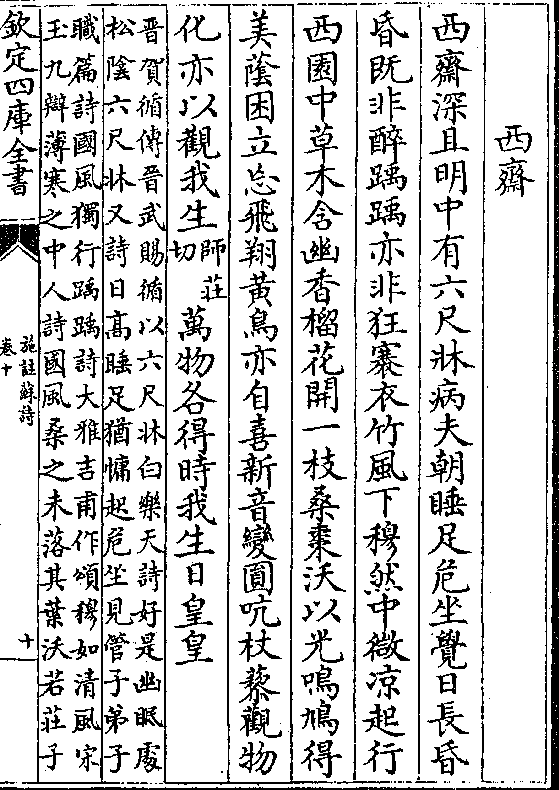 西齋
西齋深且明中有六尺牀病夫朝睡足危坐覺日長昏
昏既非醉踽踽亦非狂褰衣竹風下穆然中微凉起行
西園中草木含幽香榴花開一枝桑棗沃以光鳴鳩得
美蔭困立忘飛翔黃鳥亦自喜新音變圓吭杖藜觀物
化亦以觀我生師莊切萬物各得時我生日皇皇
晉賀循傳晉武賜循以六尺牀白樂天詩好是幽眠處
松陰六尺牀又詩日高睡足猶慵起危坐見管子弟子
職篇詩國風獨行踽踽詩大雅吉甫作頌穆如清風宋
玉九辯薄寒之中人詩國風桑之未落其葉沃若莊子
欽定四庫全書
施註蘇詩
卷十
十